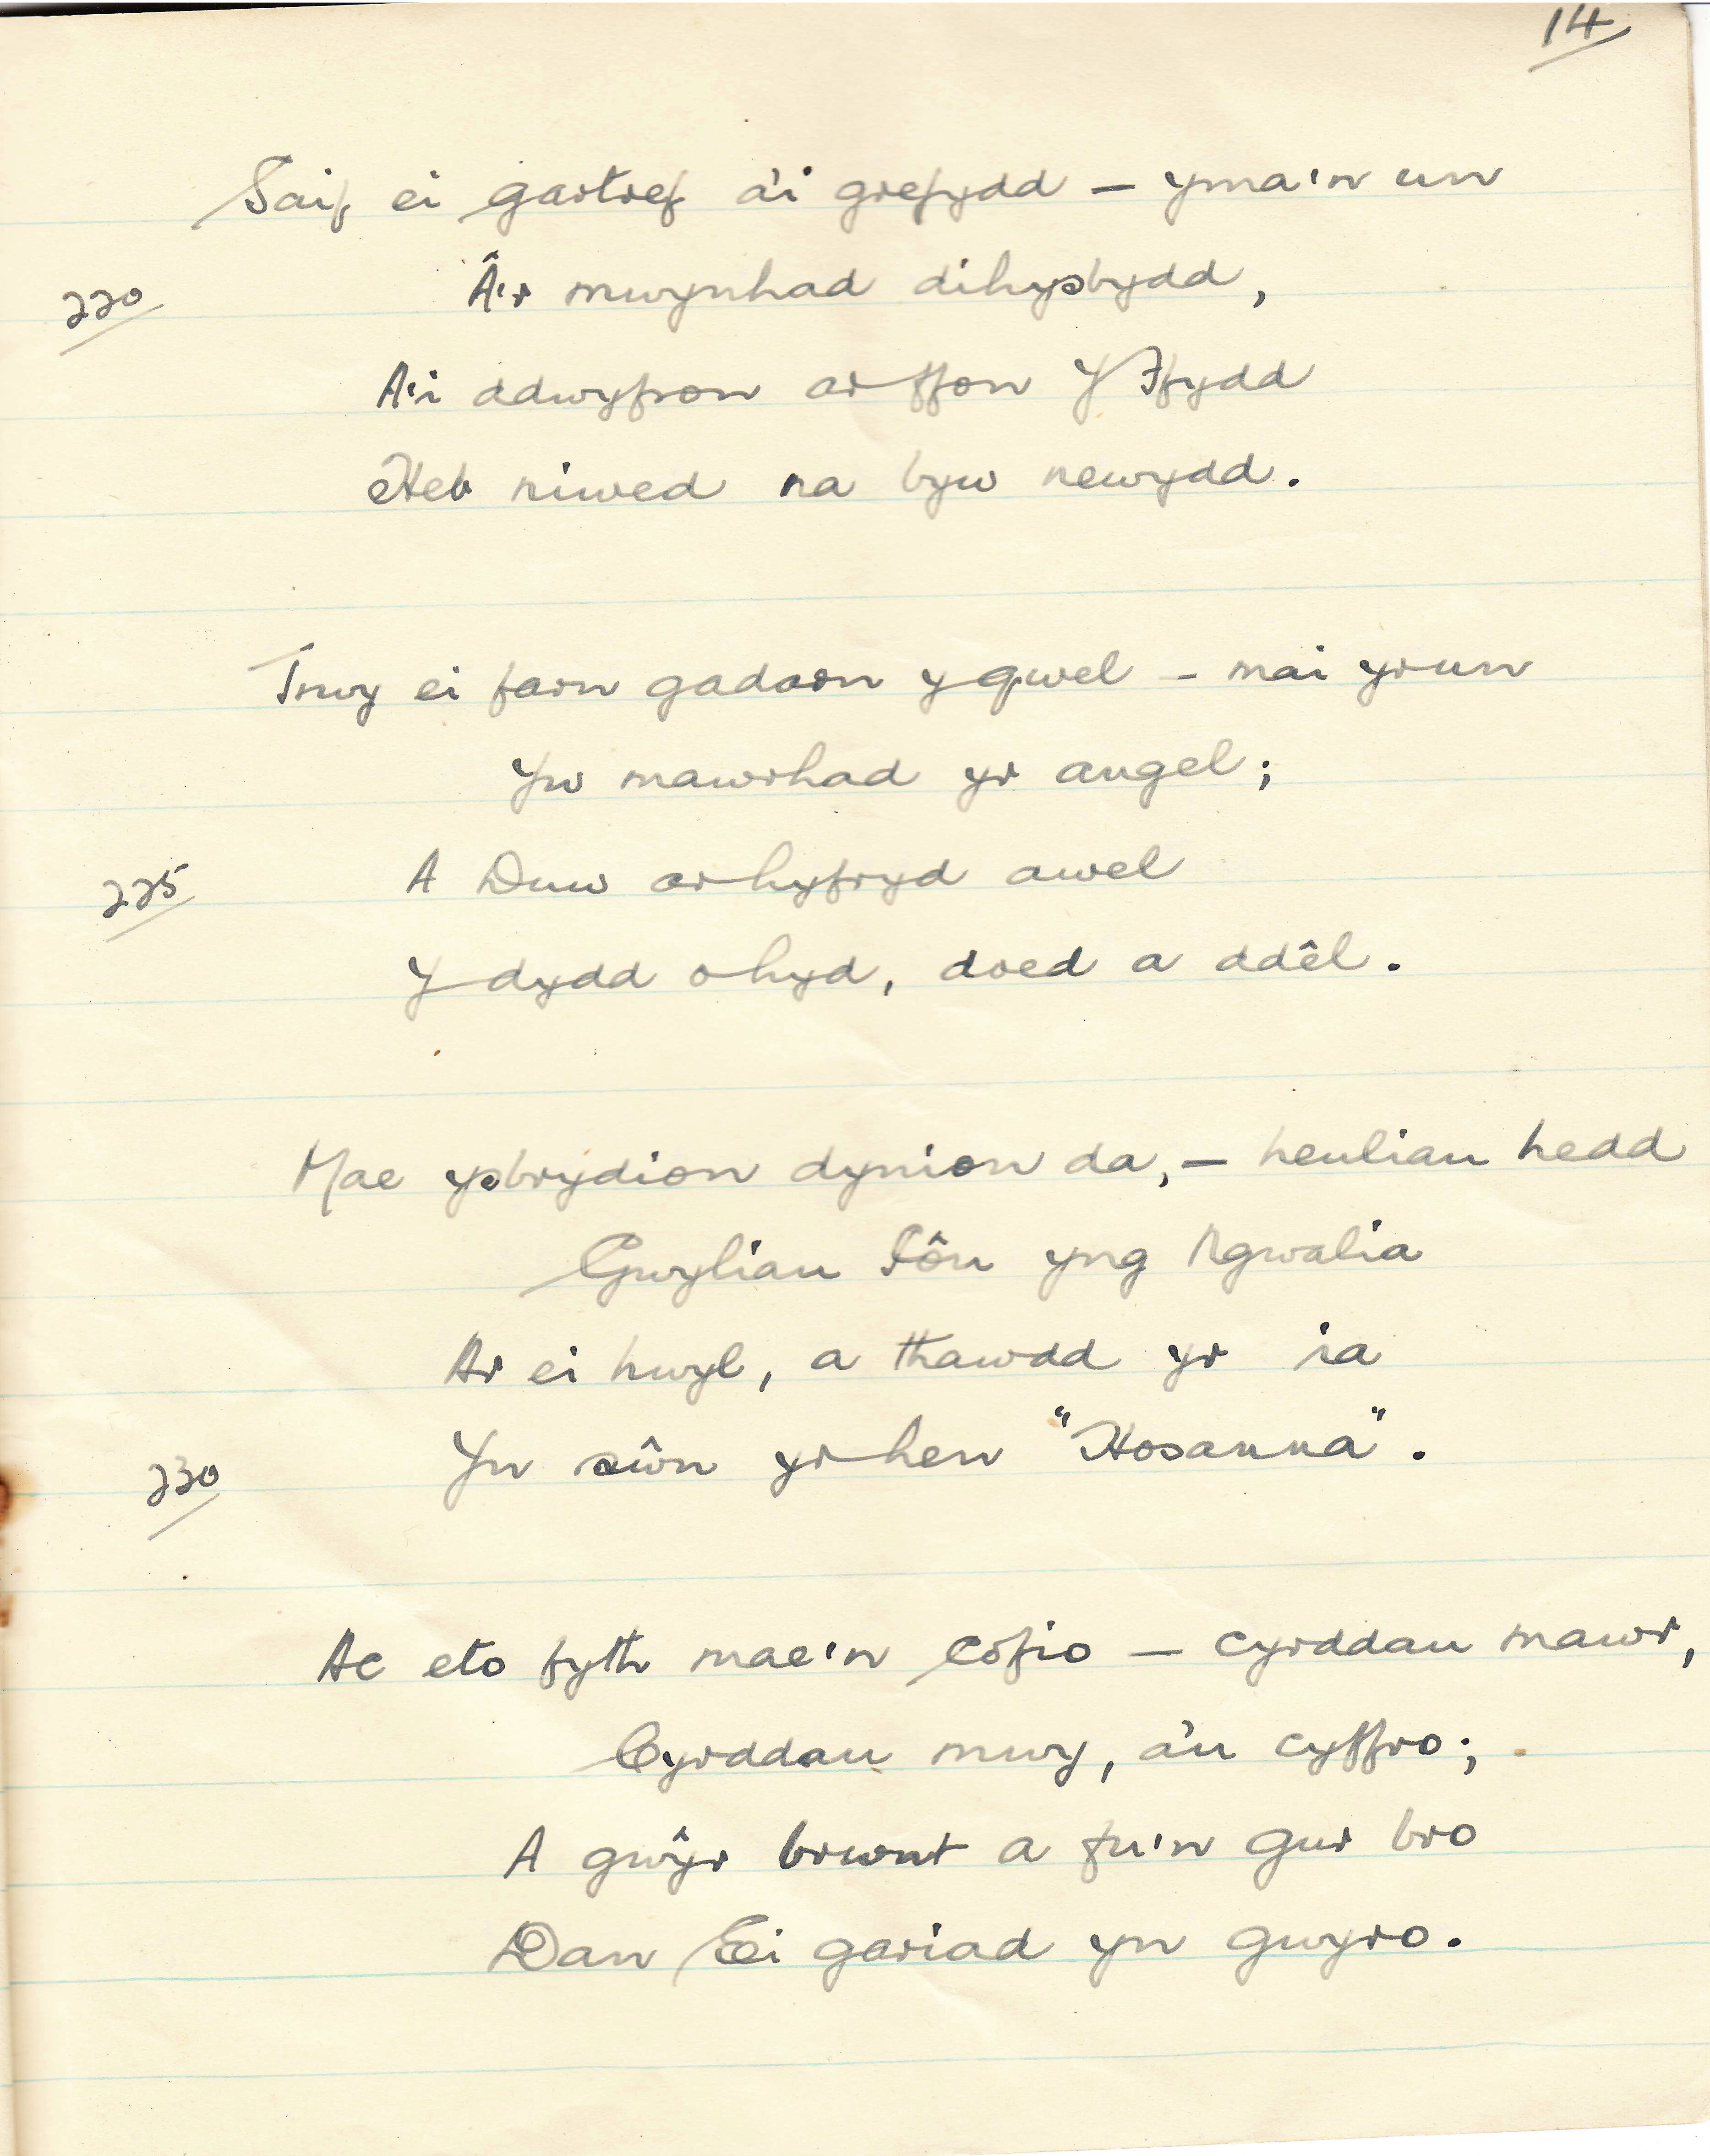 14
Saif ei gartref a'i grefydd – yma'n un
220 Â'r mwynhad dihysbydd,
A'i ddwyfron ar ffon Y Ffydd
Heb niwed na byw newydd.
Trwy ei farn gadarn y gwel – mai yr un
Yw mawrhad yr angel;
225 A Duw ar hyfryd awel
Y dydd o hyd, doed a ddêl.
Mae ysbrydion dynion da, – heuliau hedd
Gwyliau Iôn yng Ngwalia
Ar ei hwyl, a thawdd yr ia
230 Yn sŵn yr hen "Hosanna".
Ac eto fyth mae'n cofio – cyrddau mawr,
Cyrddau mwy, a'u cyffro;
A gwŷr brwnt a fu'n gur bro
Dan Ei gariad yn gwyro.